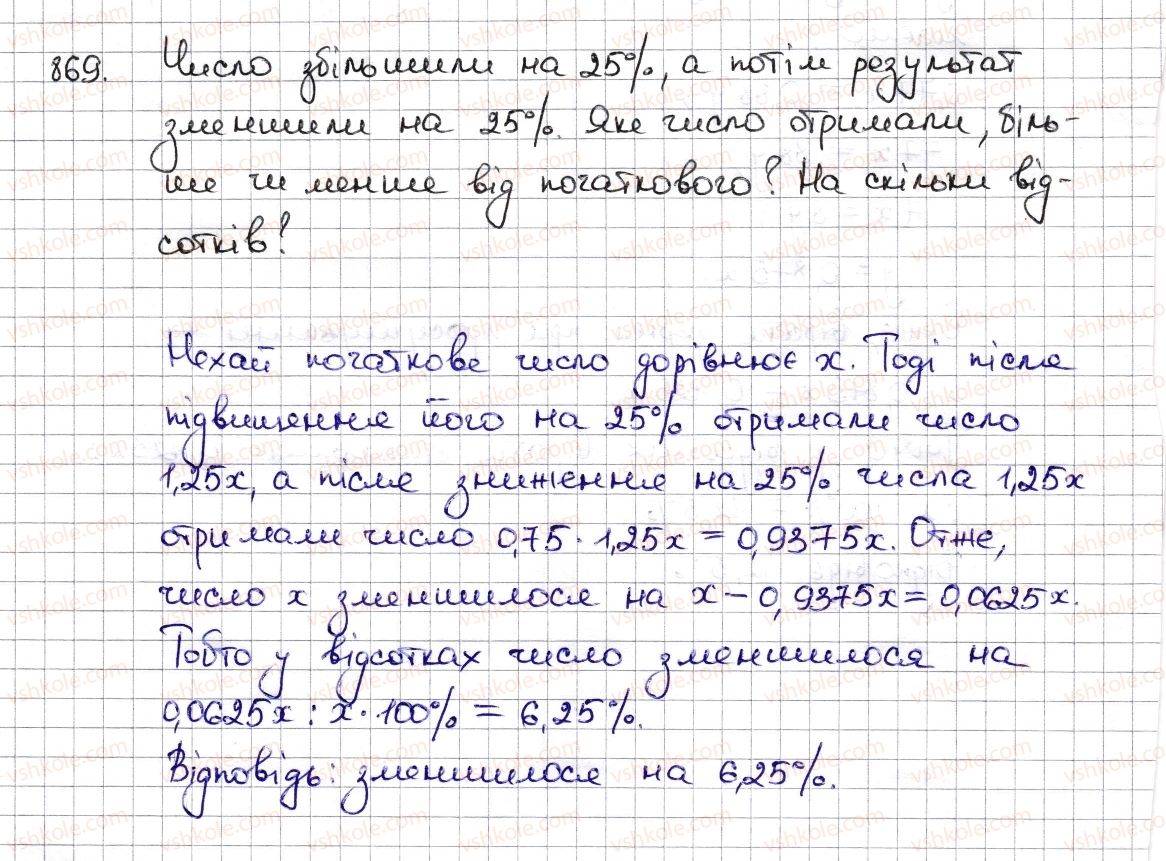 869. Число збільшили на 25%, а потім результат
зменшили на 25%. Яке число отримали, біль-
ше чи менше від початкового? На скільки від-
сотків?
Нехай початкове число дорівнює x. Тоді після
підвищення його на 25% отримали число
1,25x, а після зниження на 25% числа 1,25x
отримали число 0,75 · 1,25x = 0,9375x. Отже,
число x зменшилося на x − 0,9375x = 0,0625x.
Тобто у відсотках число зменшилося на
0,0625x : x · 100% = 6,25%.
Відповідь: зменшилося на 6,25%.